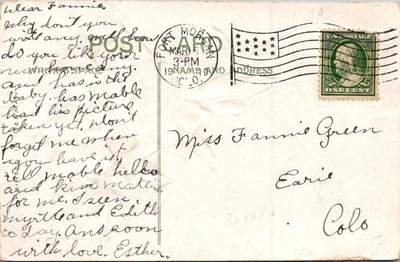 Dear Fannie
Why don't you
write any more how
do you like your
new
and how is the
baby. has Mable
had his picture
taken yet, don't
forget me when
you have it
tell Mable hello
and kiss
for me. I seen
Myrtle and Edith
to day. Ans soon
with love. Esther.
POST CARD
WRITING SPACE
NAME AND ADDRESS
FORT MORGAN
MAR
3-PM
19
COLO.
ONE CENT
Miss Fannie Green
Earie
Colo